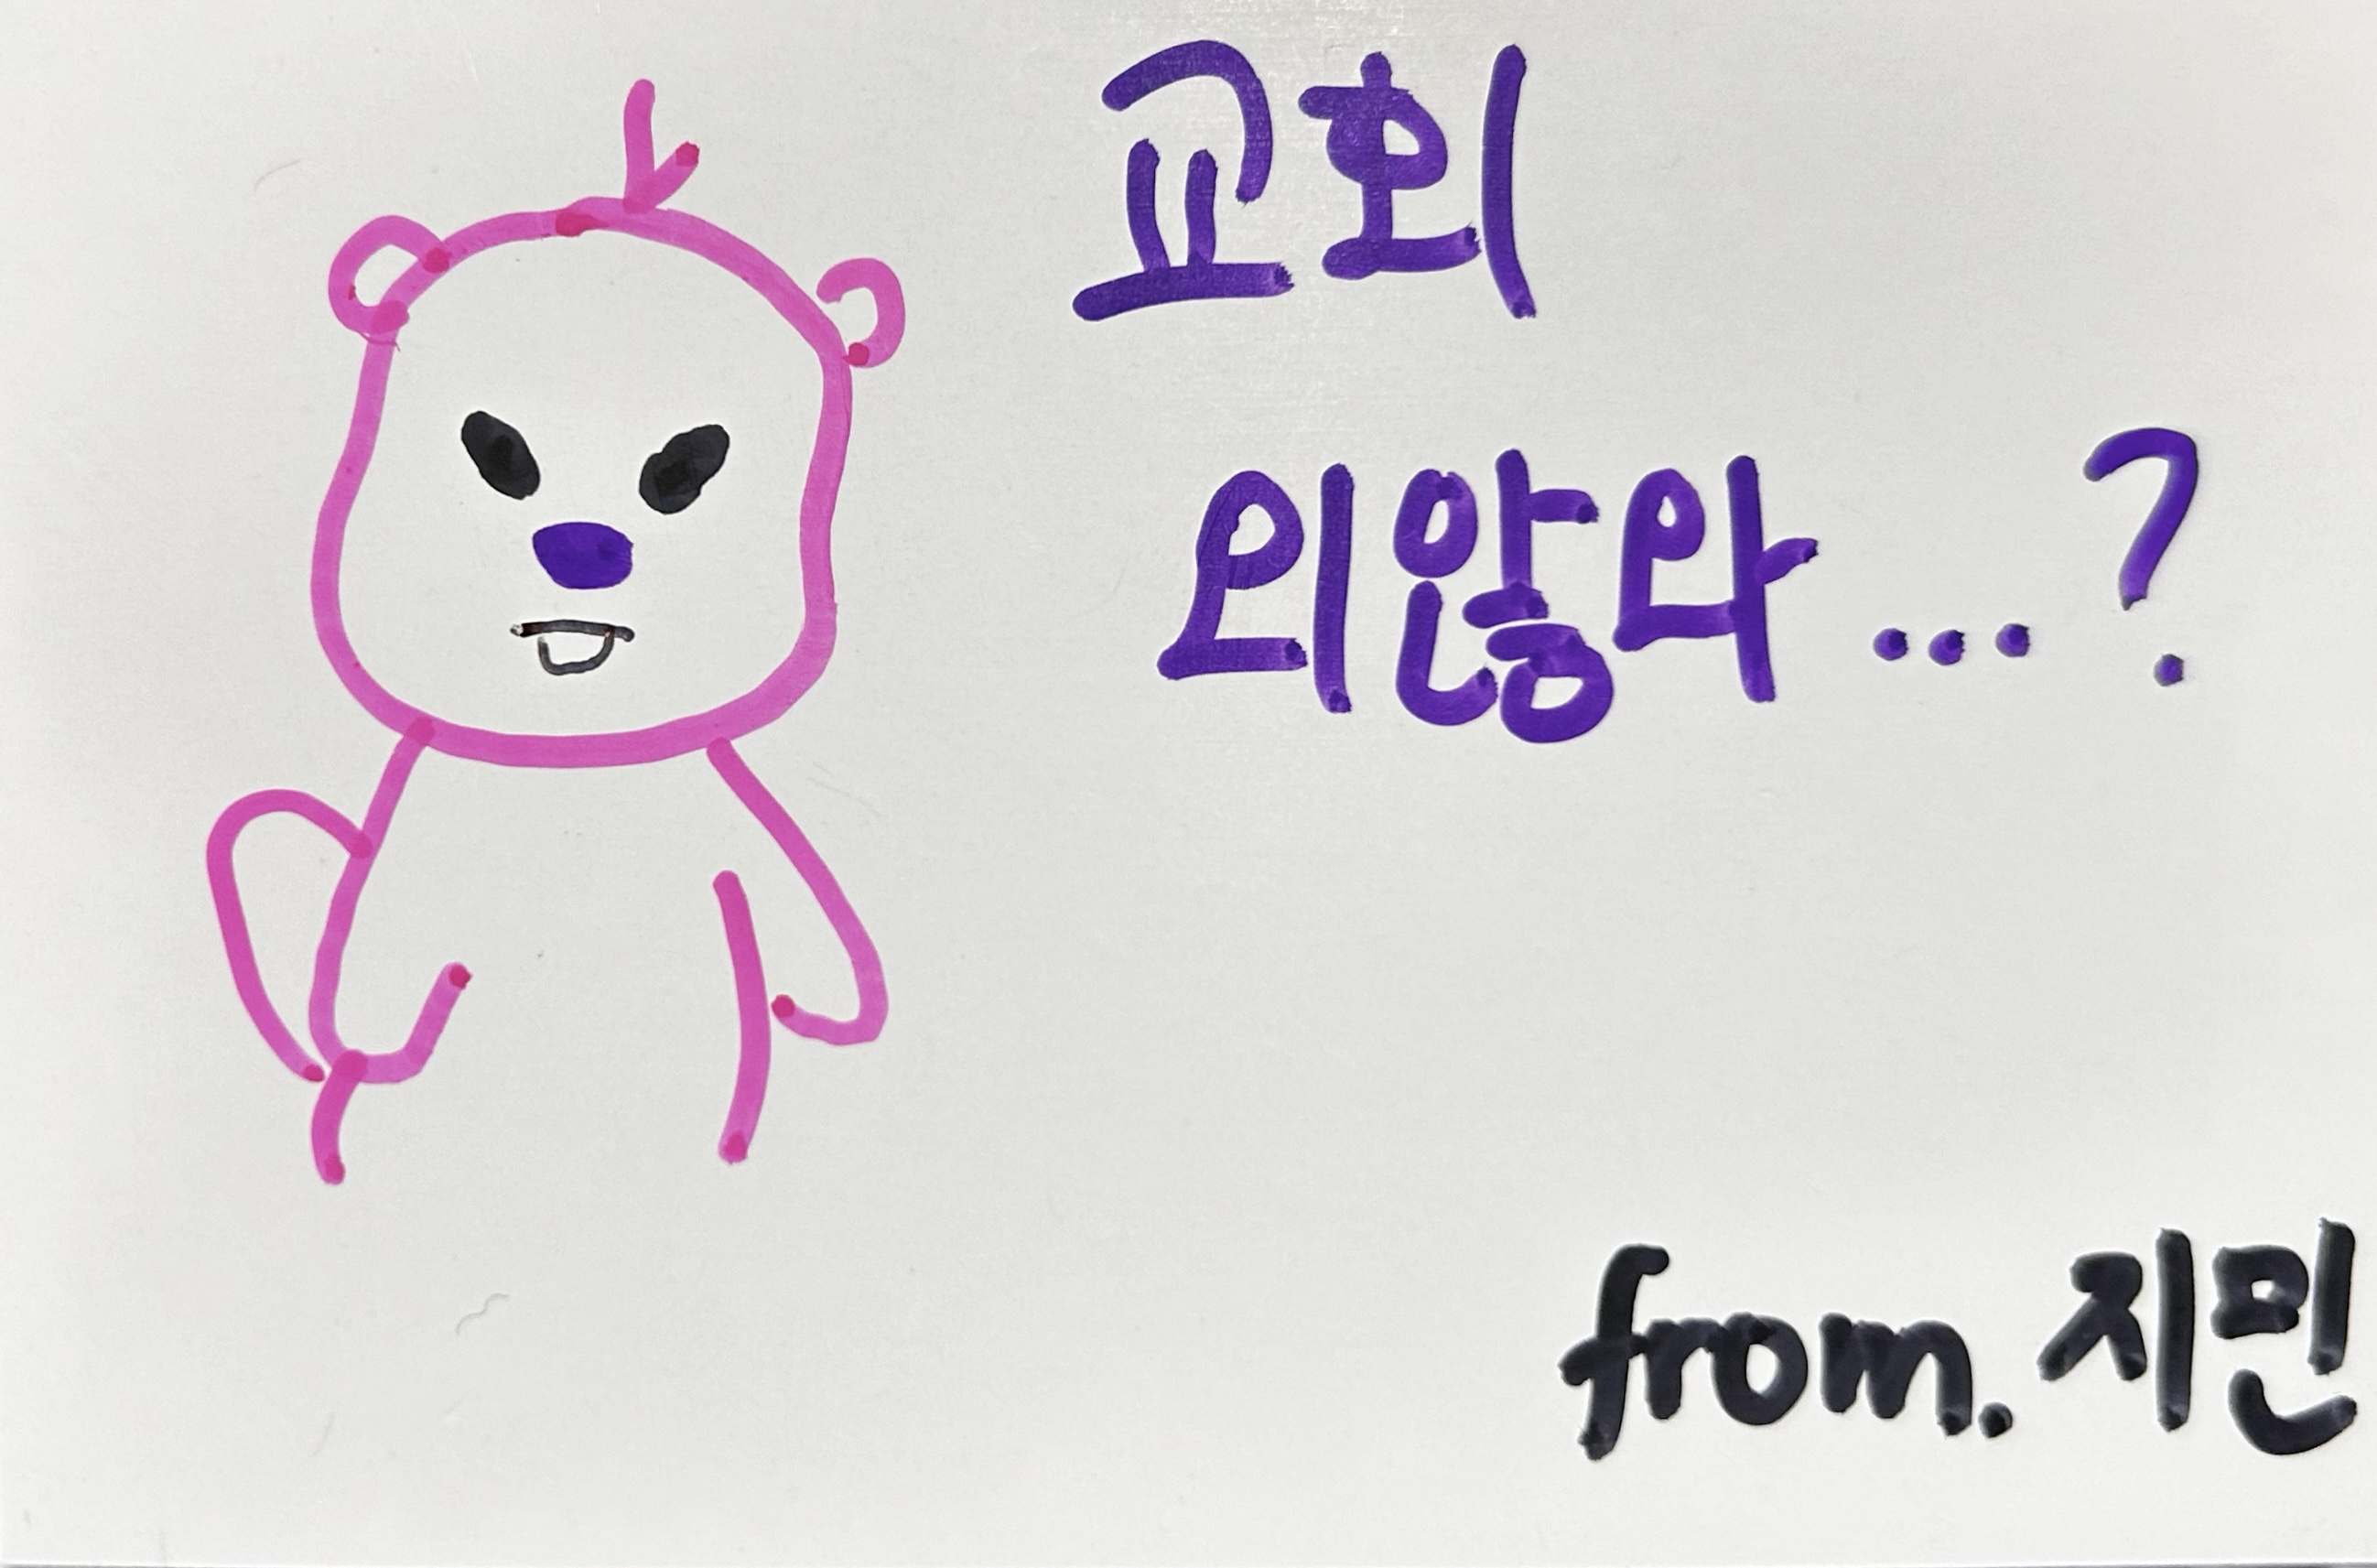 교회
외않와...?
from. 지민